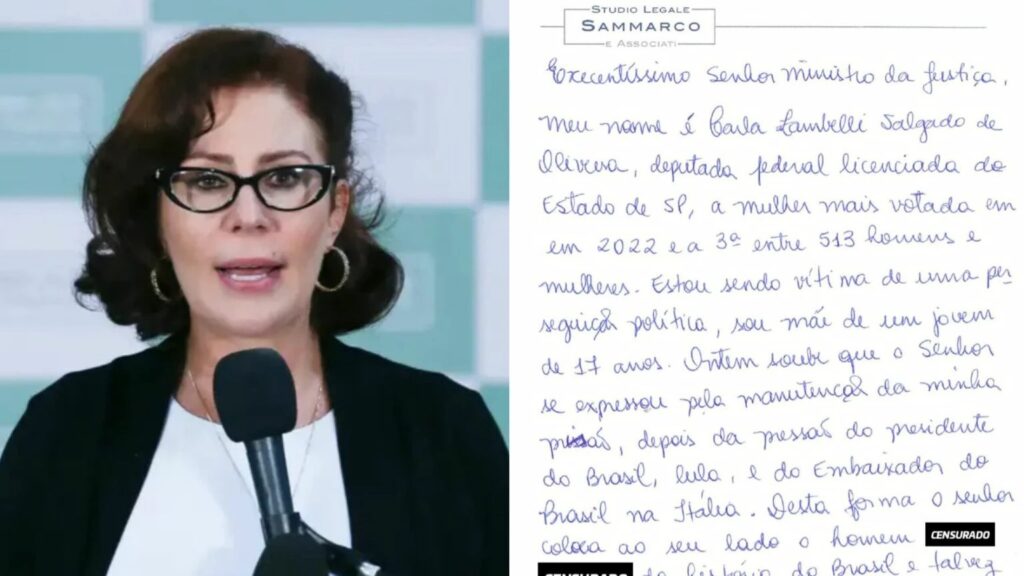 STUDIO LEGALE
SAMMARCO
E ASSOCIATI
Execentíssimo Senhor Ministro da Justiça,
meu nome é Carla Zambelli Salgado de
Oliveira, deputada federal licenciada do
Estado de SP, a mulher mais votada em
em 2022 e a 3ª entre 513 homens e
mulheres. Estou sendo vítima de uma per
seguiçaõ política, sou mãe de um jovem
de 17 anos. Ontem soube que o Senhor
se expressou pela manutençaõ da minha
prisaõ, depois da pressaõ do presidente
do Brasil, Lula, e do Embaixador do
Brasil na Itália. Desta forma o senhor
coloca ao seu lado o homem CENSURADO
CENSURADO da história do Brasil e talvez